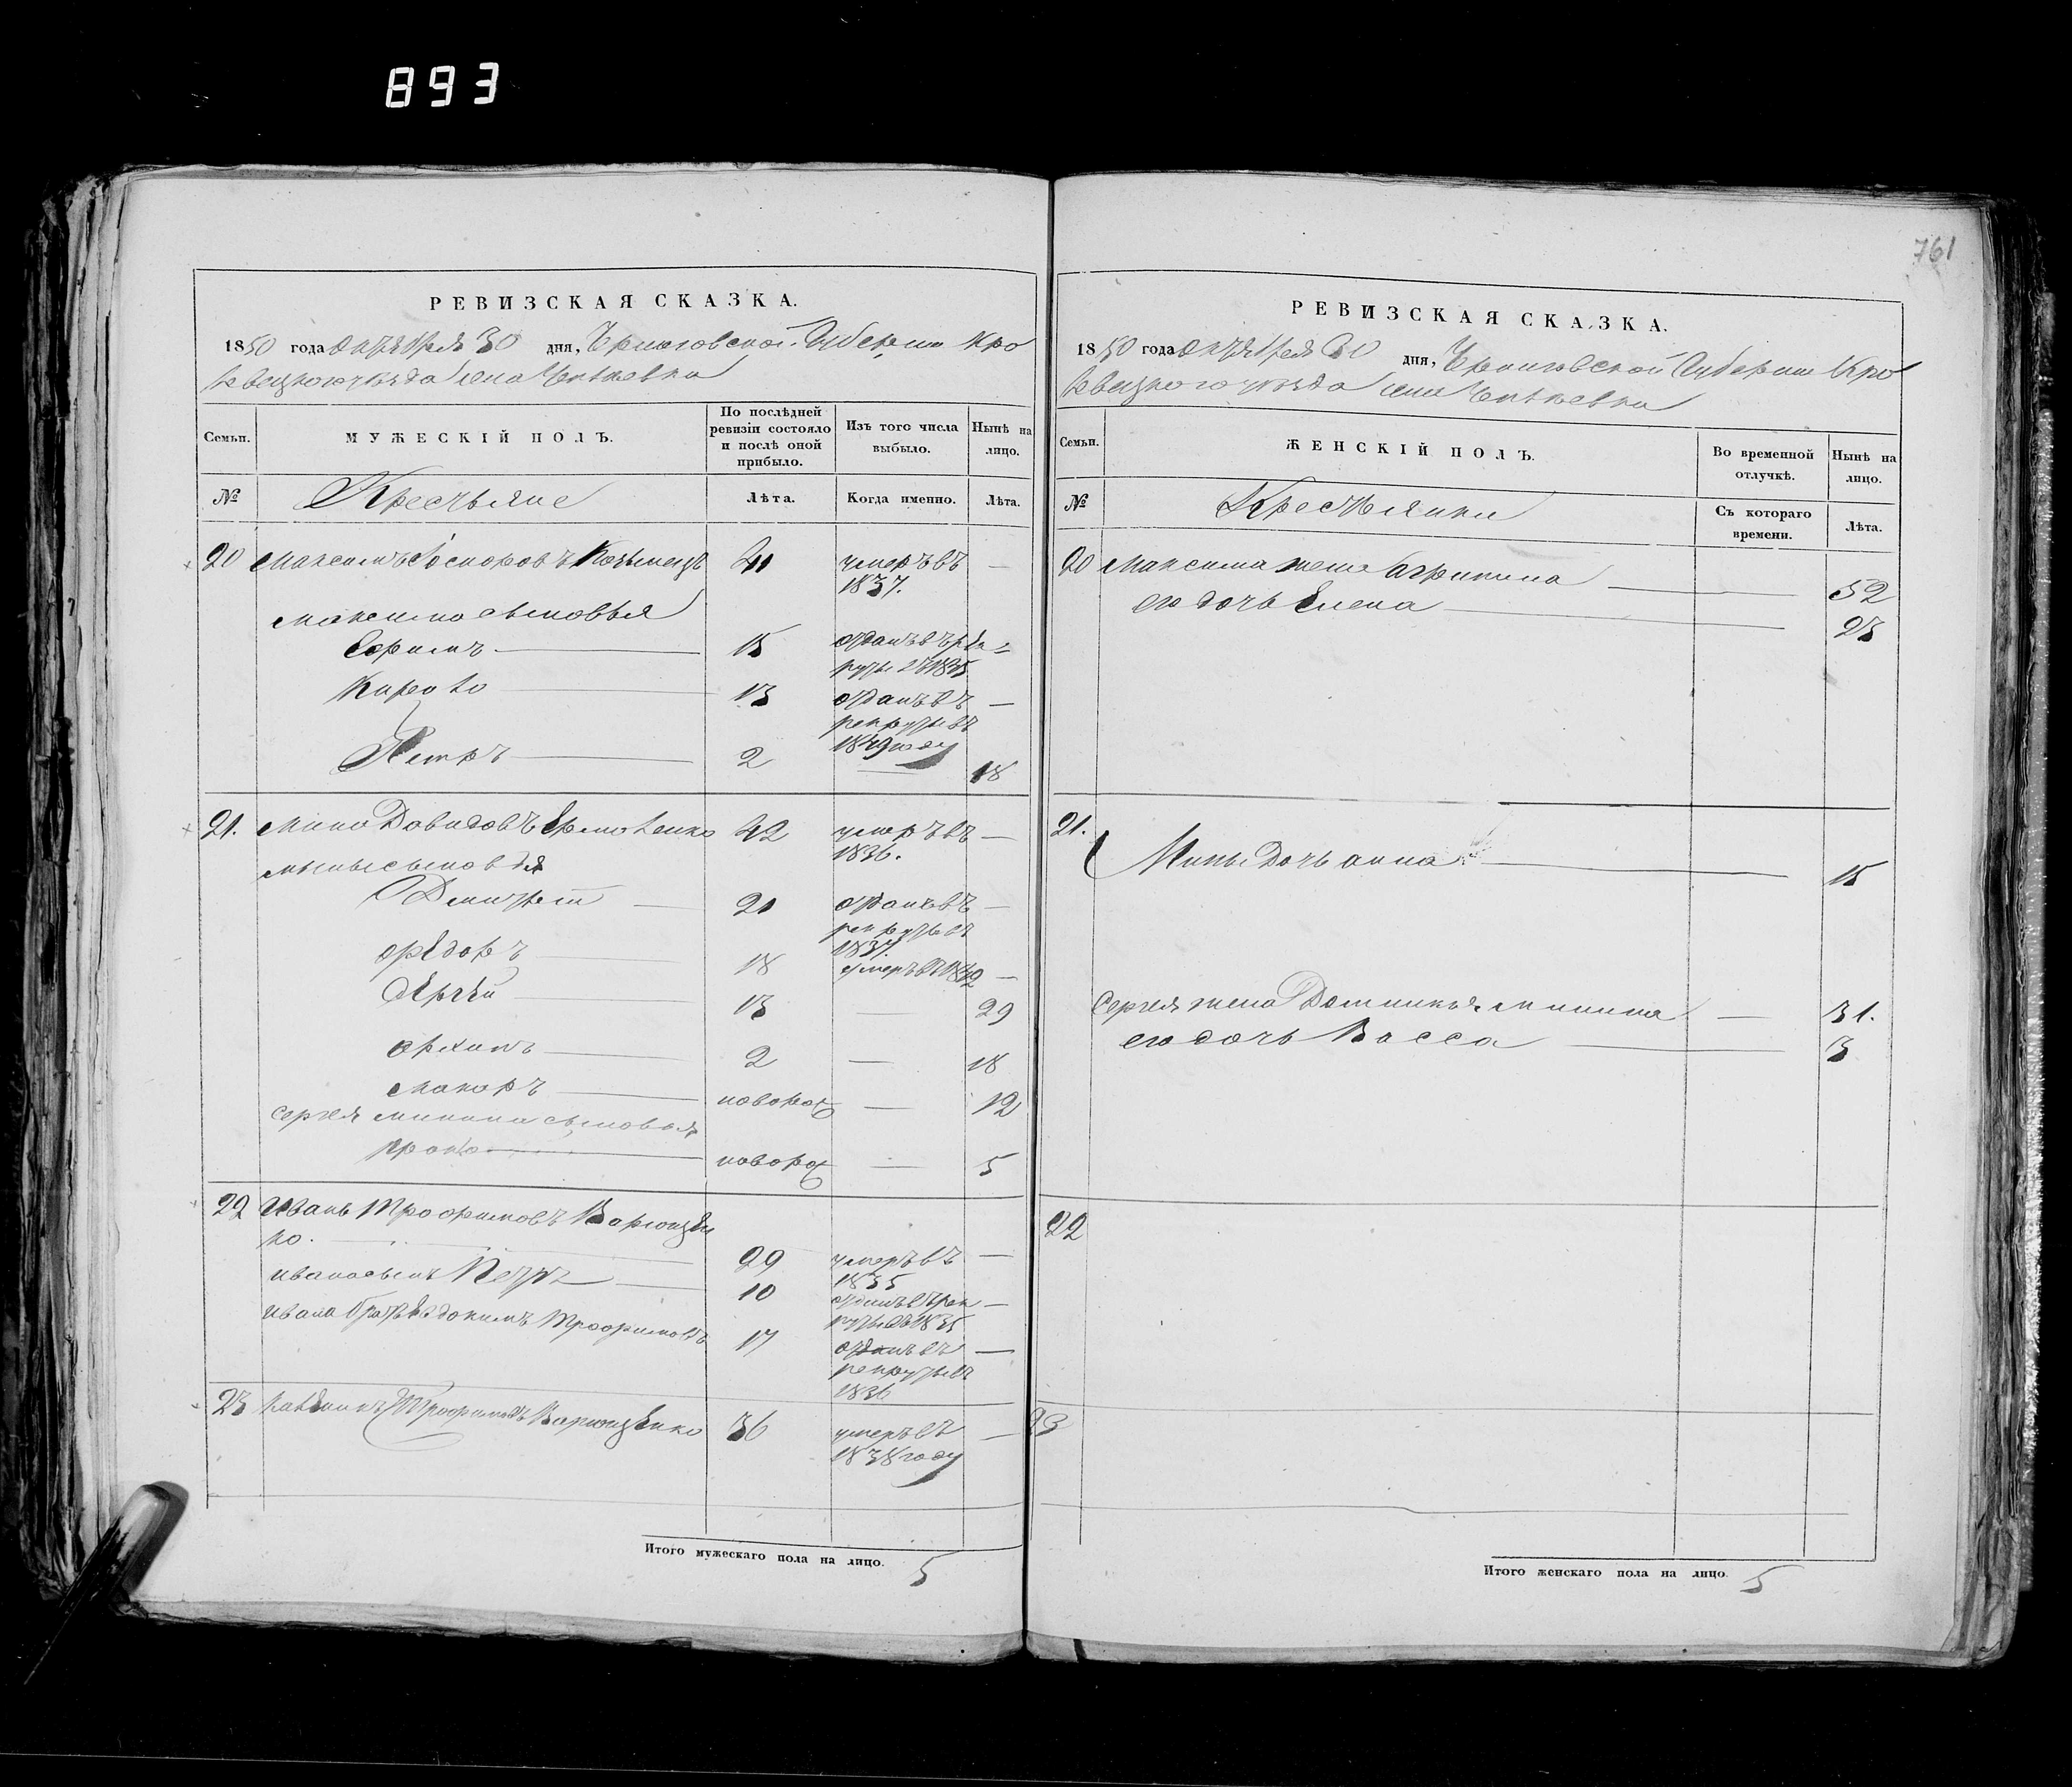 893
761
РЕВИЗСКАЯ СКАЗКА.
1850 года октября 30 дня, Черниговской Губернии Кро
левецкаго уезда села
Семьи.
МУЖЕСКІЙ ПОЛЪ.
По послѣдней ревизіи состояло и послѣ оной прибыло.
Изъ того числа выбыло.
Нынѣ на лицо.
№
Крестьяне
Лѣта.
Когда именно.
Лѣта.
20 Максимъ 41 умеръ въ —
1837.
Максима сыновья
Ефимъ 15 отданъ въ ре=
круты въ 1835
Карпо 13 отданъ въ —
рекруты въ
1849 году
Петръ 2 — 18
21. Мина Давидовъ Ермоленко 42 умеръ въ —
1836.
Мины сыновья
Дмитрий 21 отданъ въ —
рекруты въ
1837.
Федоръ 18 умеръ въ —
Сергей 13 — 29
Архипъ 2 — 18
Макаръ новорож — 12
Сергея Минина сыновья
новорож — 5
22 Иванъ Трофимовъ
ко. 29 умеръ въ —
1835
Ивана сынъ Петръ 10 отданъ въ рек —
руты въ 1835
Ивана братъ Евдокимъ Трофимовъ 17 отданъ въ —
рекруты въ
1836
23 Трофимовъ 36 умеръ въ —
1838 году
Итого мужескаго пола на лицо. 5
РЕВИЗСКАЯ СКАЗКА.
1850 года октября 30 дня, Черниговской Губернии Кро
левецкаго уезда села
Семьи.
ЖЕНСКІЙ ПОЛЪ.
Во временной отлучкѣ.
Нынѣ на лицо.
№
Крестьянки
Съ котораго времени.
Лѣта.
20 Максима жена Агрипина — 52
его дочь Елена 23
21.
Мины дочь Анна 15
Сергея жена Домникия — 31.
его дочь Васса 3
22
23
Итого женскаго пола на лицо 5